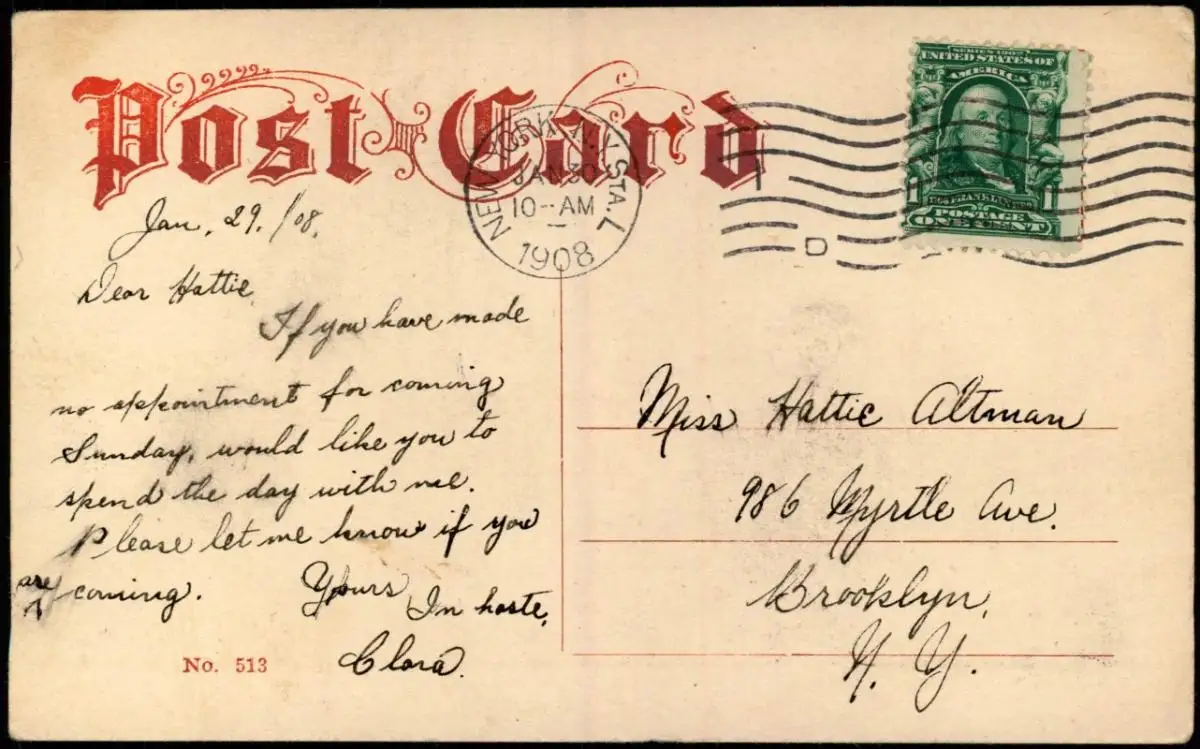 Post Card
NEW YORK, N.Y. STA. L
JAN 30
10-AM
1908
D
SERIES 1902
UNITED STATES OF
AMERICA
1706 FRANKLIN 1790
1 POSTAGE 1
ONE CENT
Jan. 29./08.
Dear Hattie
If you have made
no appointment for coming
Sunday, would like you to
spend the day with me.
Please let me know if you
are coming.
Yours
In haste,
Clara.
No. 513
Miss Hattie Altman
986 Myrtle Ave.
Brooklyn,
N. Y.